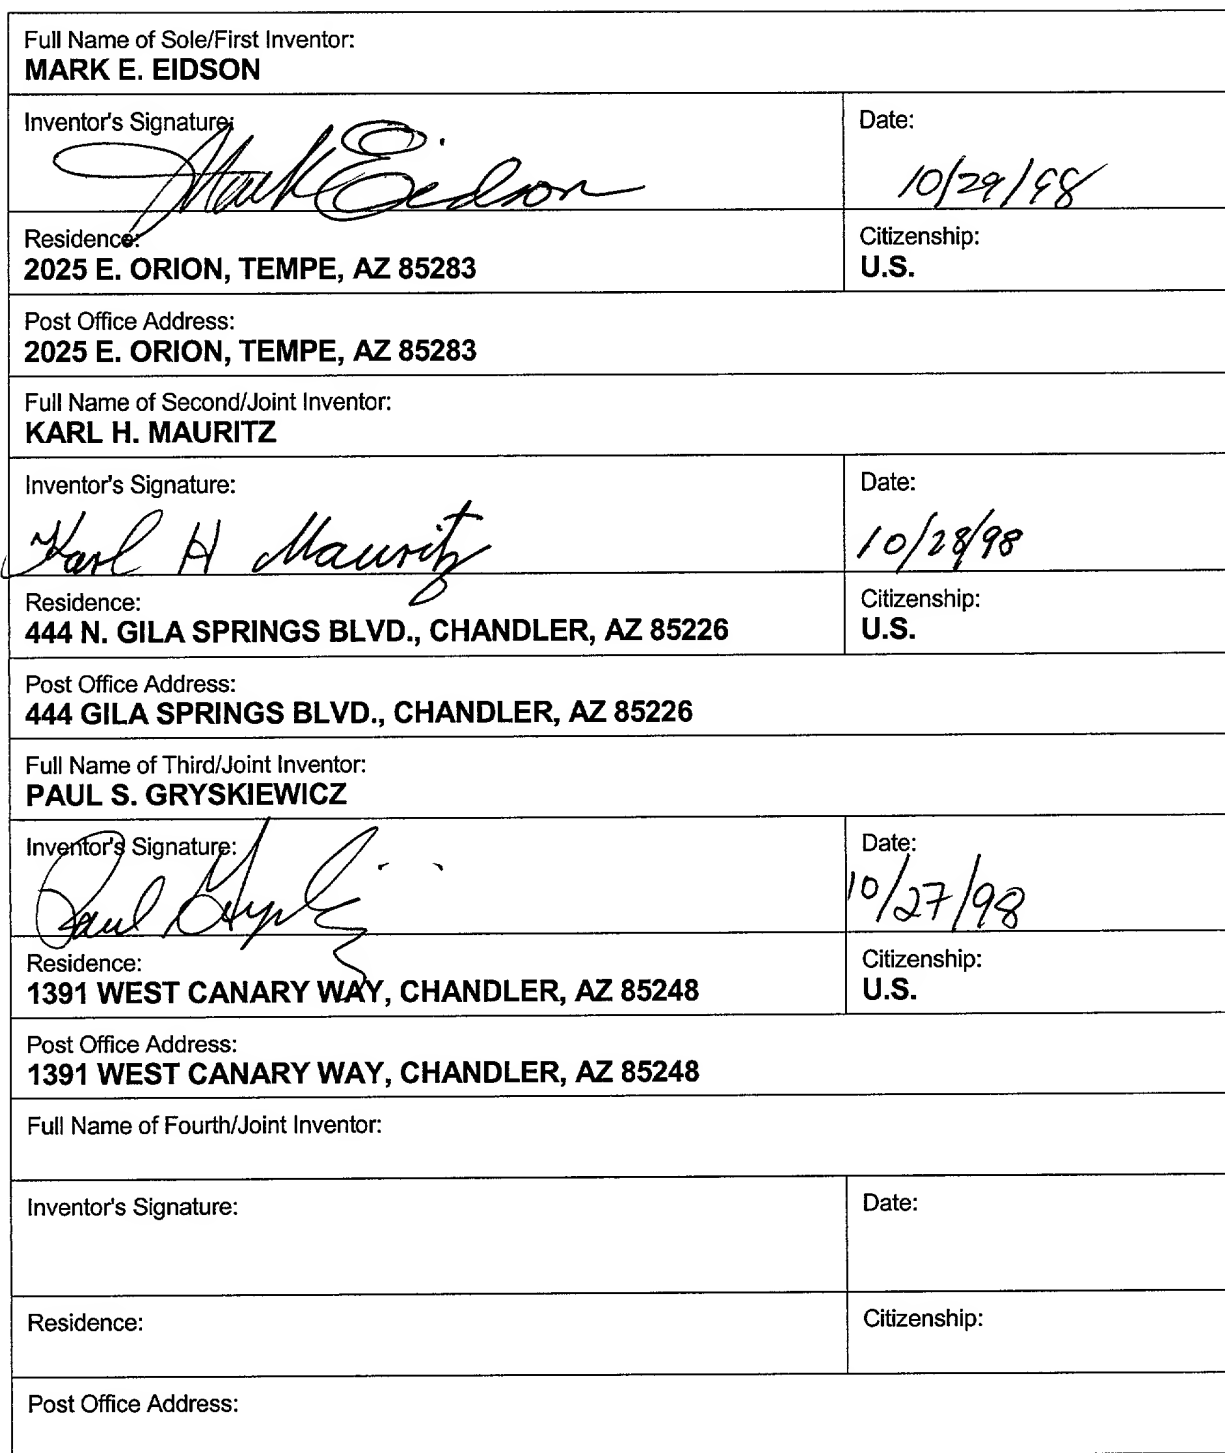 Full Name of Sole/First Inventor:
MARK E. EIDSON
Inventor's Signature: Date:
Mark Eidson 10/29/98
Residence: Citizenship:
2025 E. ORION, TEMPE, AZ 85283 U.S.
Post Office Address:
2025 E. ORION, TEMPE, AZ 85283
Full Name of Second/Joint Inventor:
KARL H. MAURITZ
Inventor's Signature: Date:
Karl H Mauritz 10/28/98
Residence: Citizenship:
444 N. GILA SPRINGS BLVD., CHANDLER, AZ 85226 U.S.
Post Office Address:
444 GILA SPRINGS BLVD., CHANDLER, AZ 85226
Full Name of Third/Joint Inventor:
PAUL S. GRYSKIEWICZ
Inventor's Signature: Date:
Paul 10/27/98
Residence: Citizenship:
1391 WEST CANARY WAY, CHANDLER, AZ 85248 U.S.
Post Office Address:
1391 WEST CANARY WAY, CHANDLER, AZ 85248
Full Name of Fourth/Joint Inventor:
Inventor's Signature: Date:
Residence: Citizenship:
Post Office Address: